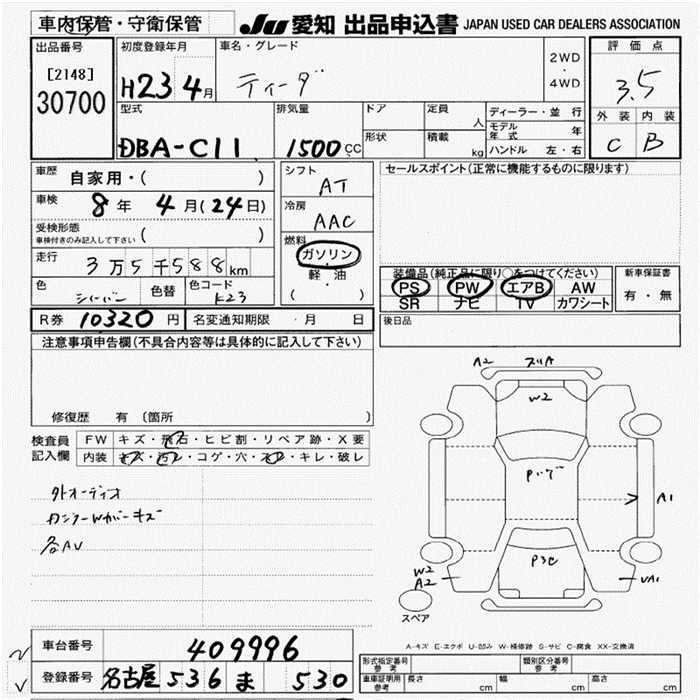 車内保管・守衛保管
JU 愛知 出品申込書 JAPAN USED CAR DEALERS ASSOCIATION
出品番号
[2148]
30700
初度登録年月
H23 4月
車名・グレード
ティーダ
2WD
・
4WD
評価点
3.5
外装 内装
C B
型式
DBA-C11
排気量
1500 CC
ドア
形状
定員
人
積載
kg
ディーラー・並行
モデル年式 年
ハンドル 左・右
車歴
自家用・( )
車検 8年 4月(24日)
受検形態
車検付きのみ記入して下さい ( )
走行 3万5千588km
色 シルバー 色替 色コード K23
シフト
AT
冷房
AAC
燃料
ガソリン
軽・油
( )
セールスポイント(正常に機能するものに限ります)
装備品(純正品に限り○をつけてください)
PS PW エアB AW
SR ナビ TV カワシート
新車保証書
有・無
R券 10320円 名変通知期限 ・ 月 日
後日品
注意事項申告欄(不具合内容等は具体的に記入して下さい)
修復歴 有 〔箇所 〕
検査員
記入欄
FW キズ・飛石・ヒビ割・リペア跡・X要
内装 キズ・汚レ・コゲ・穴・スレ・キレ・破レ
外オーディオ
各AU
A2 スリA
W2
A1
P3C
W2
A2
UA1
スペア
A-キズ E-エクボ U-凹み W-補修跡 S-サビ C-腐食 XX-交換済
車台番号 409996
登録番号 名古屋 536 ま 530
形式指定番号
参考
類別区分番号
参考
車庫証明用
参考
長さ cm 幅 cm 高さ cm